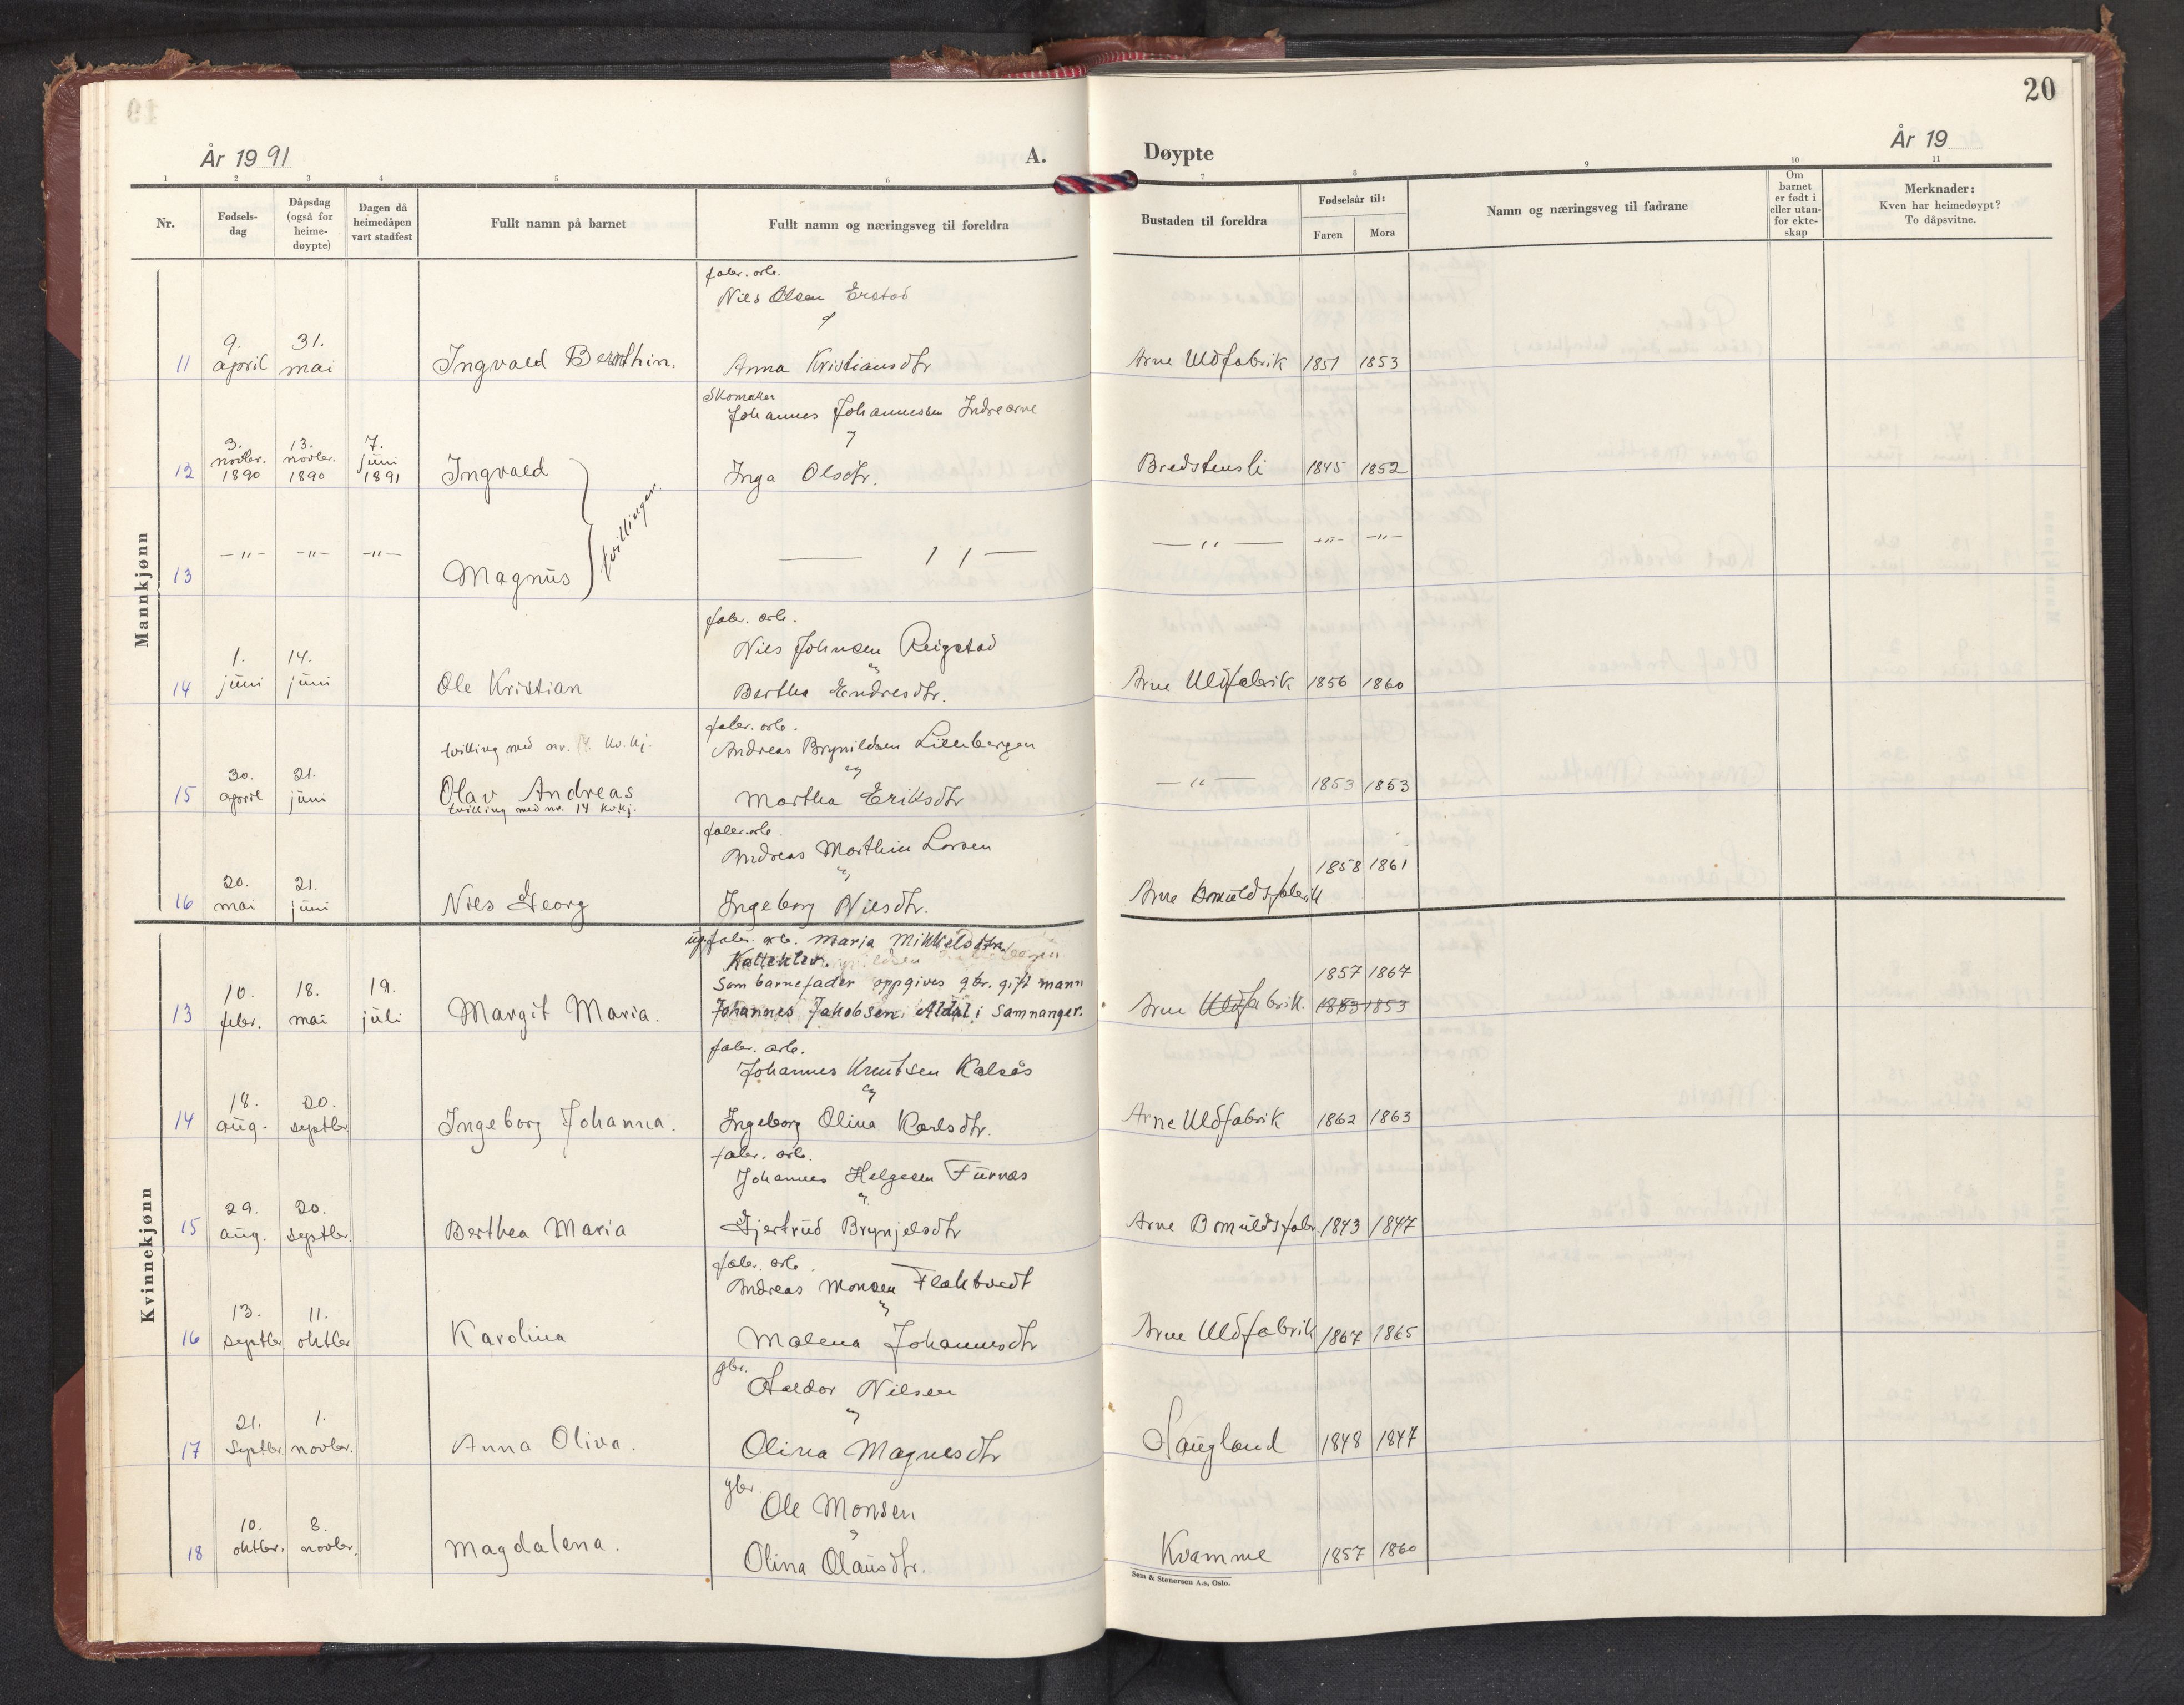 20
År 19 91
A.
Døypte
År 19
1 2 3 4 5 6 7 8 9 10 11
Nr.
Fødsels-
dag
Dåpsdag
(også for
heime-
døypte)
Dagen då
heimedåpen
vart stadfest
Fullt namn på barnet
Fullt namn og næringsveg til foreldra
Bustaden til foreldra
Fødselsår til:
Faren Mora
Namn og næringsveg til fadrane
Om
barnet
er født i
eller utan-
for ekte-
skap
Merknader:
Kven har heimedøypt?
To dåpsvitne.
Mannkjønn
fabr. arb.
Nils Olsen Erstad
og
11 9. april 31. mai Ingvald Bernthin. Anna Kristiansdtr Arne Uldfabrik 1851 1853
Skomaker
Johannes Johannessen Indrearne
og
12 3. novbr. 1890 13. novbr. 1890 7. juni 1891 Ingvald Inga Olsdtr. Bredstensli 1845 1852
tvillinger.
13 —"— —"— —"— Magnus —"— —"— —"— —"—
fabr. arb.
Nils Johnsen Reigstad
og
14 1. juni 14. juni Ole Kristian Bertha Endresdtr. Arne Uldfabrik 1856 1860
fabr. arb.
tvilling med nr. kv.kj. Andreas Brynildsen Lillebergen
og
15 30. april 21. juni Olav Andreas Martha Eriksdtr —"— 1853 1853
tvilling med nr. 14 kv.kj.
fabr. arb.
Andreas Marthin Larsen
og
16 20. mai 21. juni Nils Georg Ingeborg Nilsdtr. Arne Bomuldsfabrik 1858 1861
Kvinnekjønn
ug. fabr. arb. Maria Mikkelsdtr.
Som barnefader oppgives gbr. gift mann
13 10. febr. 18. mai 19. juli Margit Maria. Johannes Jakobsen Aldal i Samnanger. Arne Uldfabrik. 1857 1867
1853 1853
fabr. arb.
Johannes Knutsen Kalsås
og
14 18. aug. 20. septbr. Ingeborg Johanna. Ingeborg Olina Karlsdtr. Arne Uldfabrik 1862 1863
fabr. arb.
Johannes Helgesen Furnes
og
15 29. aug. 20. septbr. Berthea Maria Gjertrud Brynjelsdtr Arne Bomuldsfabr. 1843 1847
fabr. arb.
Andreas Monsen Flaktvedt
og
16 13. septbr 11. oktbr Karolina Malena Johannesdtr Arne Uldfabrik 1867 1865
gbr.
Haldor Nilsen
og
17 21. Septbr. 1. novbr. Anna Oliva. Olina Magnesdtr Haugland 1848 1847
gbr.
Ole Monsen
og
18 10. oktbr. 8. novbr. Magdalena. Olina Olausdtr. Kvamme 1857 1860
Sem & Stenersen A.s, Oslo.